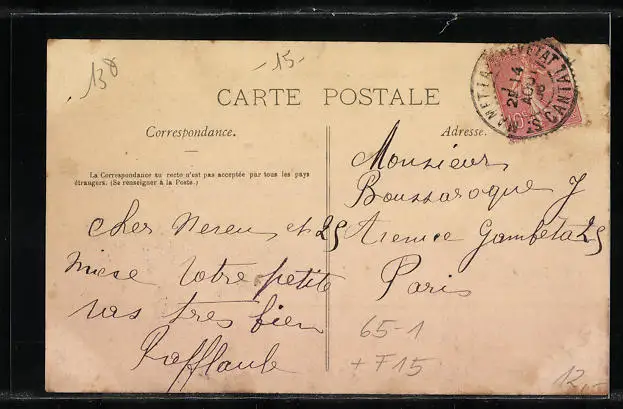 138
-15-
CARTE POSTALE
Correspondance.
Adresse.
La Correspondance au recto n'est pas acceptée par tous les pays
étrangers. (Se renseigner à la Poste.)
10c
14
AOUT
CANTAL
Monsieur
Boussaroque J
25 Avenue Gambeta 25
Paris
cher
et
votre petite
vas tres bien
65-1
+ F15
12